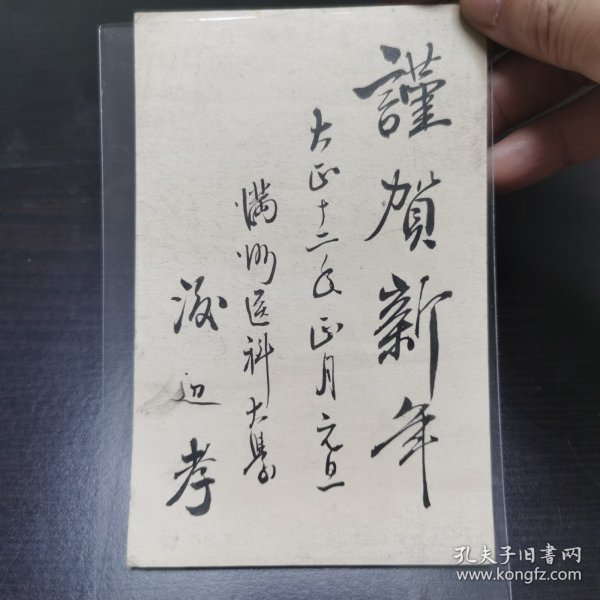 謹賀新年
大正十二年正月元旦
満州医科大學
渡辺孝
孔夫子旧书网
www.kongfz.com